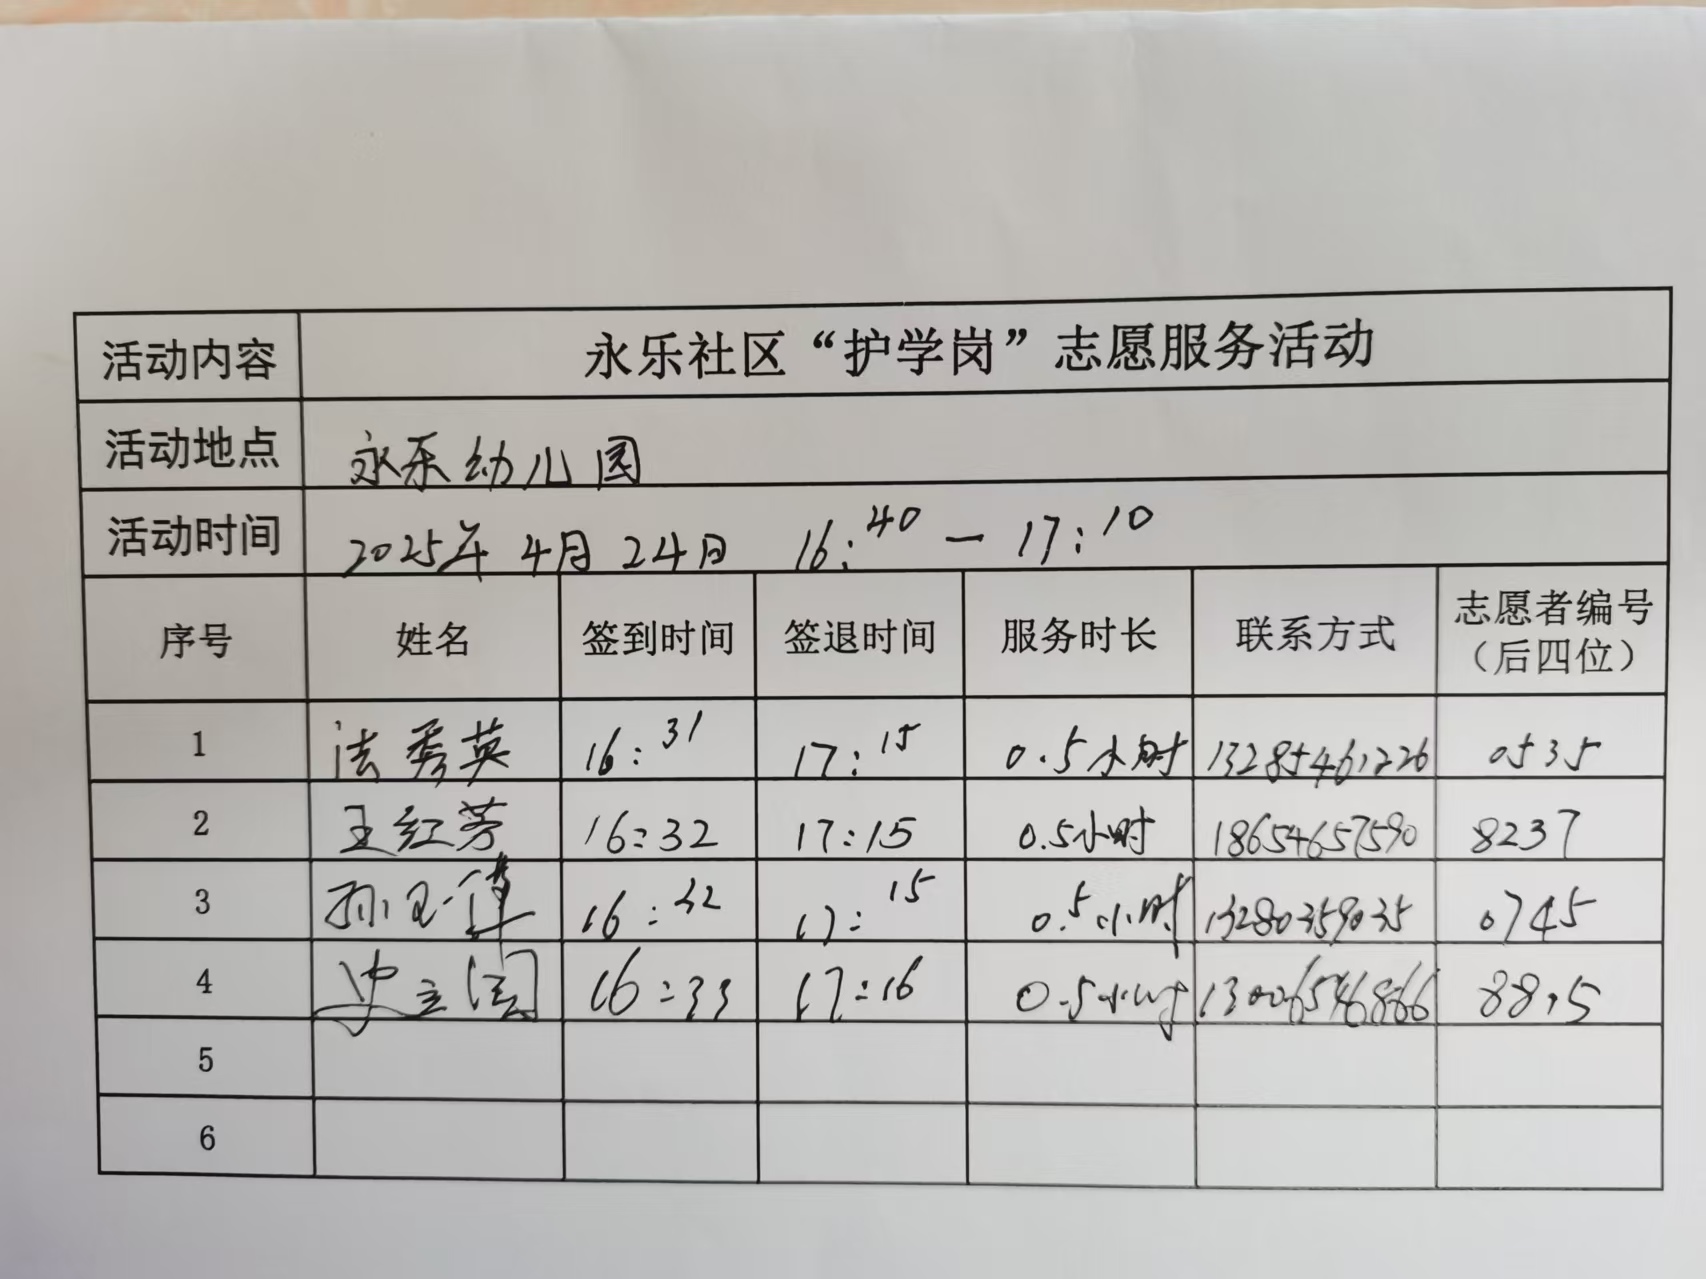 活动内容 永乐社区“护学岗”志愿服务活动
活动地点 永乐幼儿园
活动时间 2025年4月24日 16:40－17:10
序号 姓名 签到时间 签退时间 服务时长 联系方式 志愿者编号（后四位）
1 法秀英 16:31 17:15 0.5小时 13285461226 0535
2 王红芳 16:32 17:15 0.5小时 18654657590 8237
3 孙 16:32 17:15 0.5小时 13280359035 0745
4 史立国 16:33 17:16 0.5小时 13006546866 8815
5
6